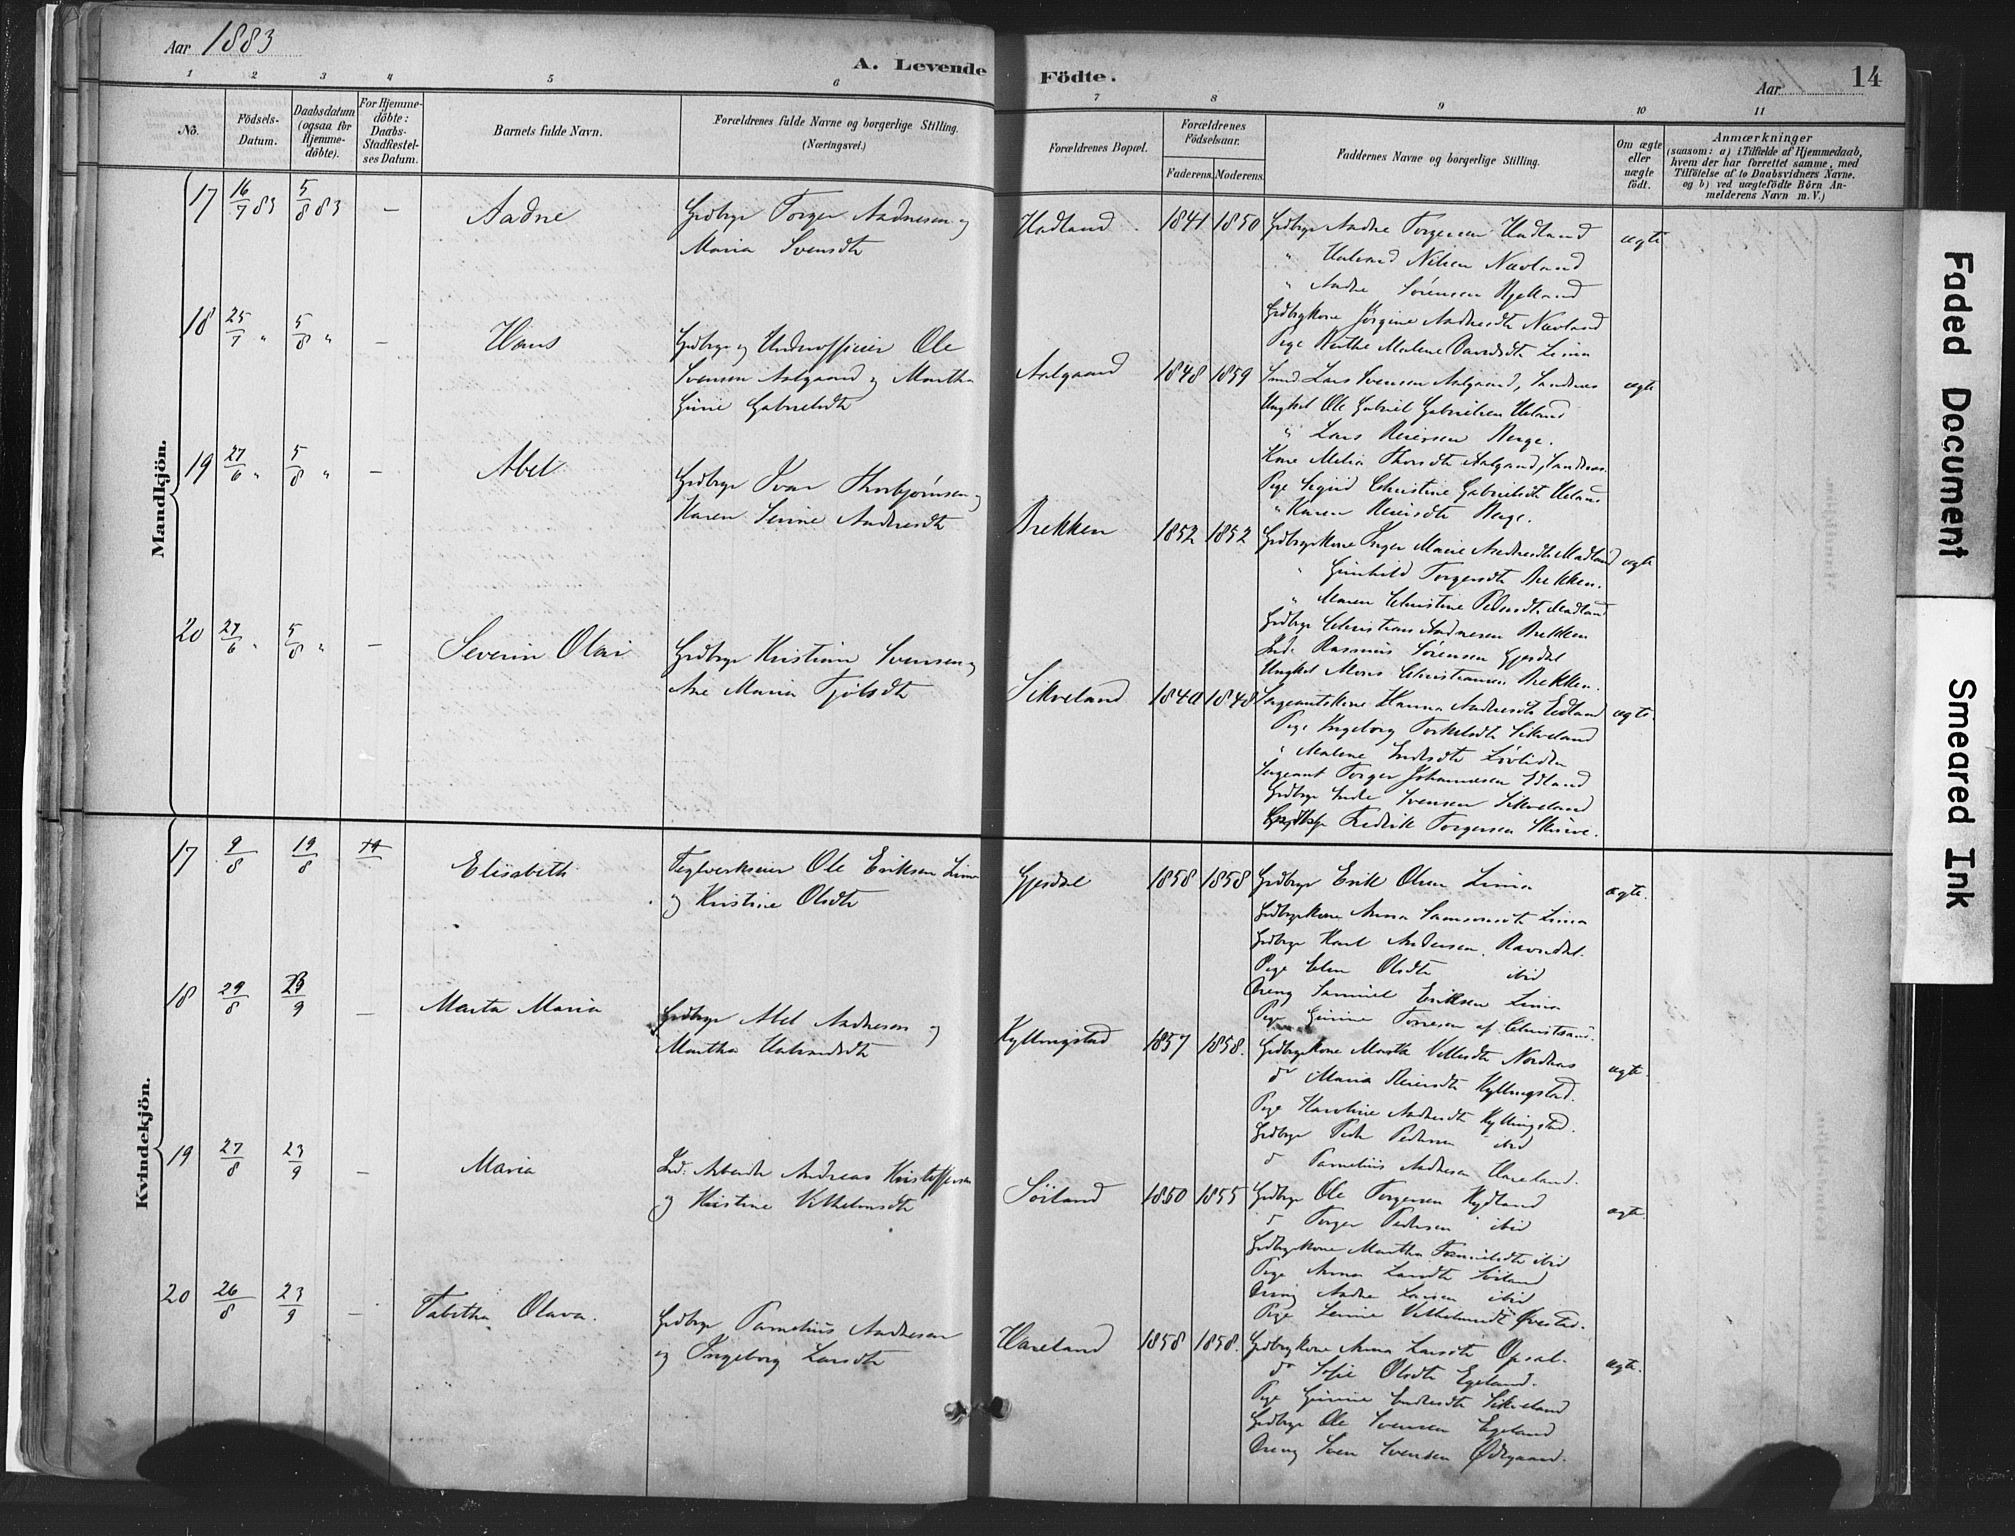 Aar 1883
A. Levende Födte.
Aar
14
1 2 3 4 5 6 7 8 9 10 11
No.
Födsels-Datum.
Daabsdatum (ogsaa for Hjemme-döbte).
For Hjemme-döbte: Daabs-Stadfæstel-ses Datum.
Barnets fulde Navn.
Forældrenes fulde Navne og borgerlige Stilling. (Næringsvei.)
Forældrenes Bopæl.
Forældrenes Födselsaar.
Faderens. Moderens.
Faddernes Navne og borgerlige Stilling.
Om ægte eller uægte födt.
Anmærkninger
(saasom: a) i Tilfælde af Hjemmedaab,
hvem der har forrettet samme, med
Tilföielse af to Daabsvidners Navne.
og b) ved uægtefödte Börn An-
melderens Navn m. V.)
Mandkjön.
17 16/7 83 5/8 83 — Aadne
Grdbrgr Torger Aadnesen og
Maria Svensdtr
Hadland 1841 1850
Grdbrgr Aadne Torgersen Hadland
" Halvard Nilsen Nævland
" Aadne Sörensen Gjelland
Grdbrgkone Jörgine Aadnesdtr Nævland
Pige Berthe Malene Davidsdtr Lima
ægte
18 25/7 " 5/8 " — Hans
Grdbrgr og Underofficier Ole
Svensen Aalgaard og Martha
Gurie Gabrielsdtr
Aalgaard 1848 1859
Smed Lars Svensen Aalgaard, Sandnes
Ungkel Ole Gabriel Gabrielsen Ueland
" Lars Reiersen Berge.
Kone Melia Thorsdtr Aalgaard, Sandnes.
Pige Sigrid Christine Gabrielsdtr Ueland
" Karen Reiersdtr Berge.
ægte
19 27/6 " 5/8 " — Abel
Grdbrgr Ivar Thorbjörnsen og
Karen Serine Andreasdtr
Brekken 1852 1852
Grdbrgrkone Inger Marie Andreasdtr Madland
" Gunhild Torgersdtr Brekken.
" Maren Christine Pedersdtr Madland
Grdbrgr Christian Andresen Brekken
Ind. Rasmus Sörensen Gjesdal
Ungkel Mons Christiansen Brekken.
ægte
20 27/6 " 5/8 " — Severin Olai
Grdbrgr Kristian Svensen og
Ane Maria Tjölsdtr
Sikveland 1840 1848
Sergeantskone Hanna Andreasdtr Edland
Pige Ingeborg Torkelsdtr Sikveland
" Malene Endresdtr
Sergeant Torger Johannesen Edland
Grdbrgr Endre Svensen Sikveland
Grdbrgr Fredrik Torgersen Skurve.
ægte.
Kvindekjön.
17 9/8 19/8 Elisabeth
Teglverkseier Ole Eriksen Lima
og Kristine Olsdtr
Gjesdal 1858 1858
Grdbrgr Erik Olsen Lima
Grdbrgrkone Anna Samsonsdtr Lima
Grdbrgr Karl Andersen Ravndal.
Pige Elen Olsdtr ibid
Dreng Samuel Eriksen Lima
Pige Gurine Torresen af Christsand.
ægte.
18 29/8 23/9 — Marta Maria
Grdbrgr Abel Andresen og
Martha Halvardsdtr
Kyllingstad 1857 1858.
Grdbrgrkone Marta Villasdtr Nordaas
do Maria Reiersdtr Kyllingstad.
Pige Karoline Andresdtr Kyllingstad.
Grdbrgr Peder Pedersen ibid
do Tarnelius Andresen Haveland.
ægte.
19 27/8 23/9 — Maria
Ind. Arbeider Andreas Kristoffersen
og Kristine Vilhelmsdtr
Söiland 1850 1855
Grdbrgr Ole Torgersen Kydland
do Torger Pedersen ibid
Grdbrgrkone Martha Danielsdtr ibid
Pige Anna Larsdtr Söiland
Dreng Andre Larsen ibid
Pige Lenine Vilhelmsdtr Övestad.
ægte.
20 26/8 23/9 — Tabitha Olava.
Grdbrgr Tarnelius Andresen
og Ingeborg Larsdtr
Haveland 1858 1858.
Grdbrgkone Anna Larsdtr Opsal.
do Sofie Olsdtr Egeland.
Pige Gurine Endresdtr Sikveland
Grdbrgr Ole Svensen Egeland
Dreng Sven Svensen Ödegaard.
ægte.
Faded Document
Smeared Ink